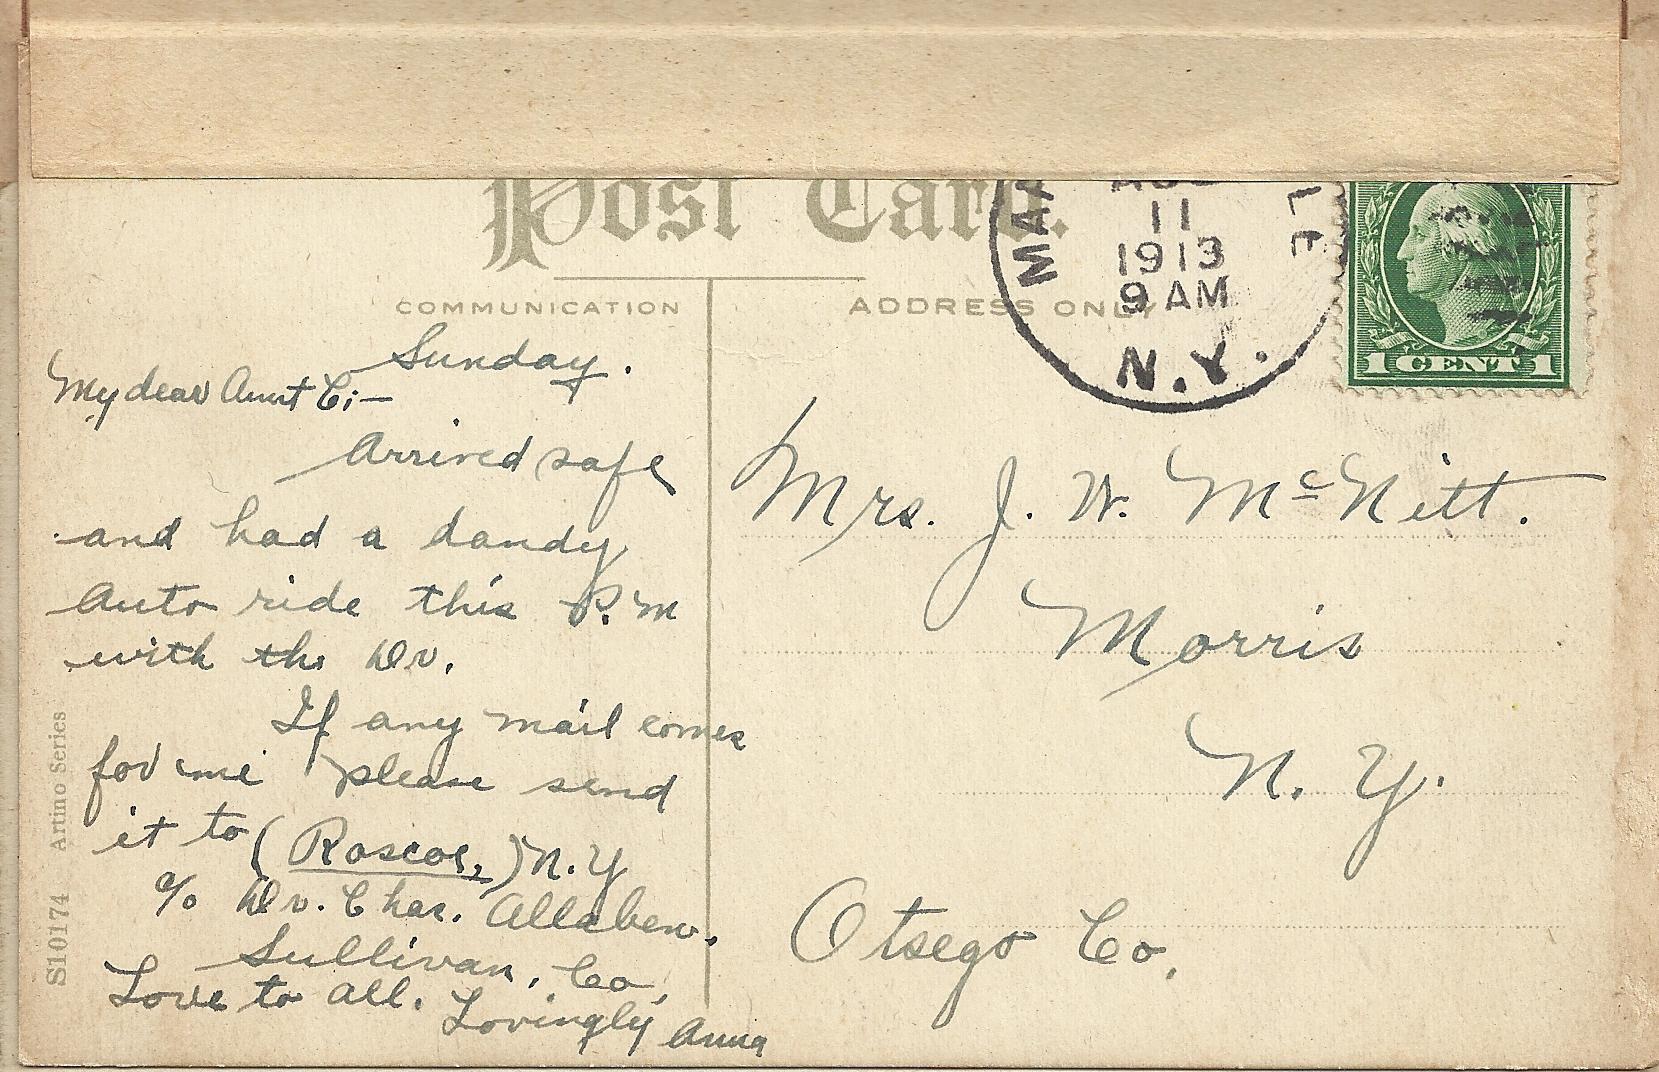 Post Card.
COMMUNICATION
ADDRESS ONLY
11
1913
9 AM
N.Y.
1 CENT 1
Sunday.
My dear Aunt C;—
Arrived safe
and had a dandy
Auto ride this P.M
with the Dr.
If any mail comes
for me please send
it to (Roscoe,) N.Y
c/o Dr. Chas. Allaben.
Sullivan, Co,
Love to all.
Lovingly Anna
Mrs. J. W. McNitt.
Morris
N. Y.
Otsego Co,
S10174 Artino Series